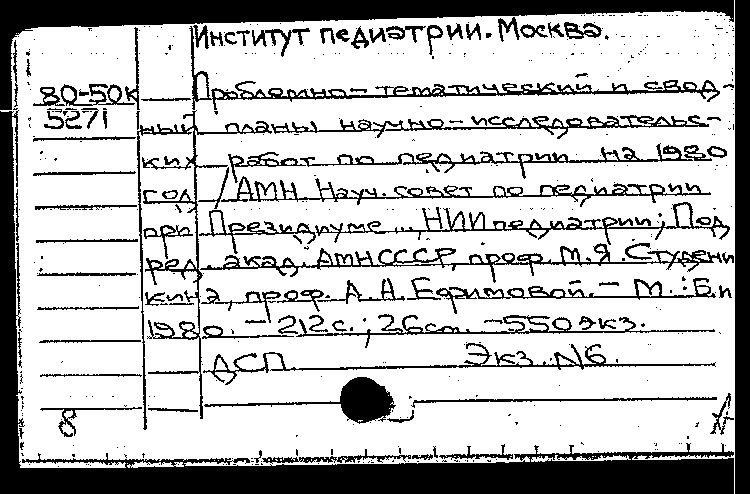 Институт педиатрии. Москва.
80-50к Проблемно-тематический и свод-
5271 ный планы научно-исследовательс-
ких работ по педиатрии на 1980
год / АМН. Науч. совет по педиатрии
при Президиуме .., НИИ педиатрии; Под
ред. акад. АМН СССР, проф. М.Я. Студени
кина, проф. А.А. Ефимовой. - М.: Б.и
1980. - 212с.; 26см. - 550 экз.
ДСП Экз. N6.
8